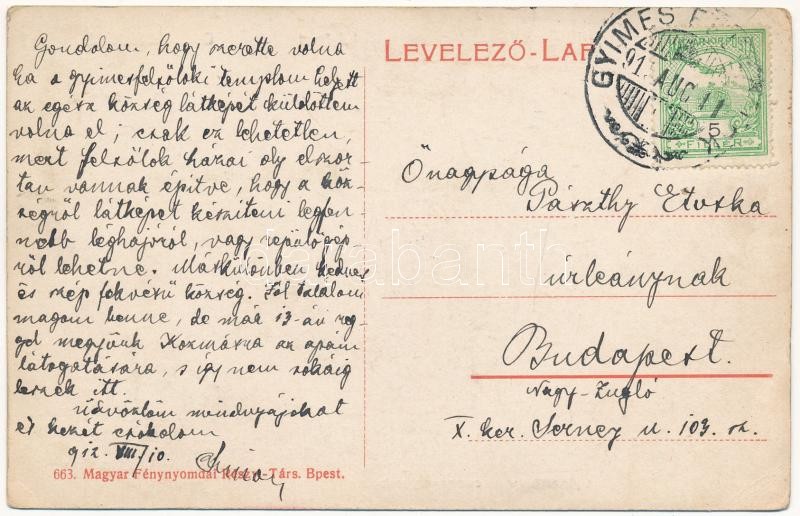 Gondolom, hogy szerette volna
ha a gyimesfelsőloki templom helyett
az egész község látképét küldöttem
volna el; csak ez lehetetlen,
mert Felsőlok házai oly elszór-
tan vannak építve, hogy a köz-
ségről látképet készíteni legfen-
nebb léghajóról, vagy repülőgép-
ről lehetne. Máskülönben kedves
és szép fekvésű község. Jól találom
magam benne, de már 13-án reg-
gel megyünk Kozmásra az apám
látogatására, s így nem sokáig
leszek itt.
Üdvözlöm mindnyájukat
és kezét csókolom
912. VIII/10.
663. Magyar Fénynyomdai Részv.-Társ. Bpest.
LEVELEZŐ-LAP
GYIMES F
912 AUG 11
5
FILLÉR
Önagysága
Pászthy Etuska
úrleánynak
Budapest.
Nagy-Zugló
X. ker. Serney u. 103. sz.
darabanth